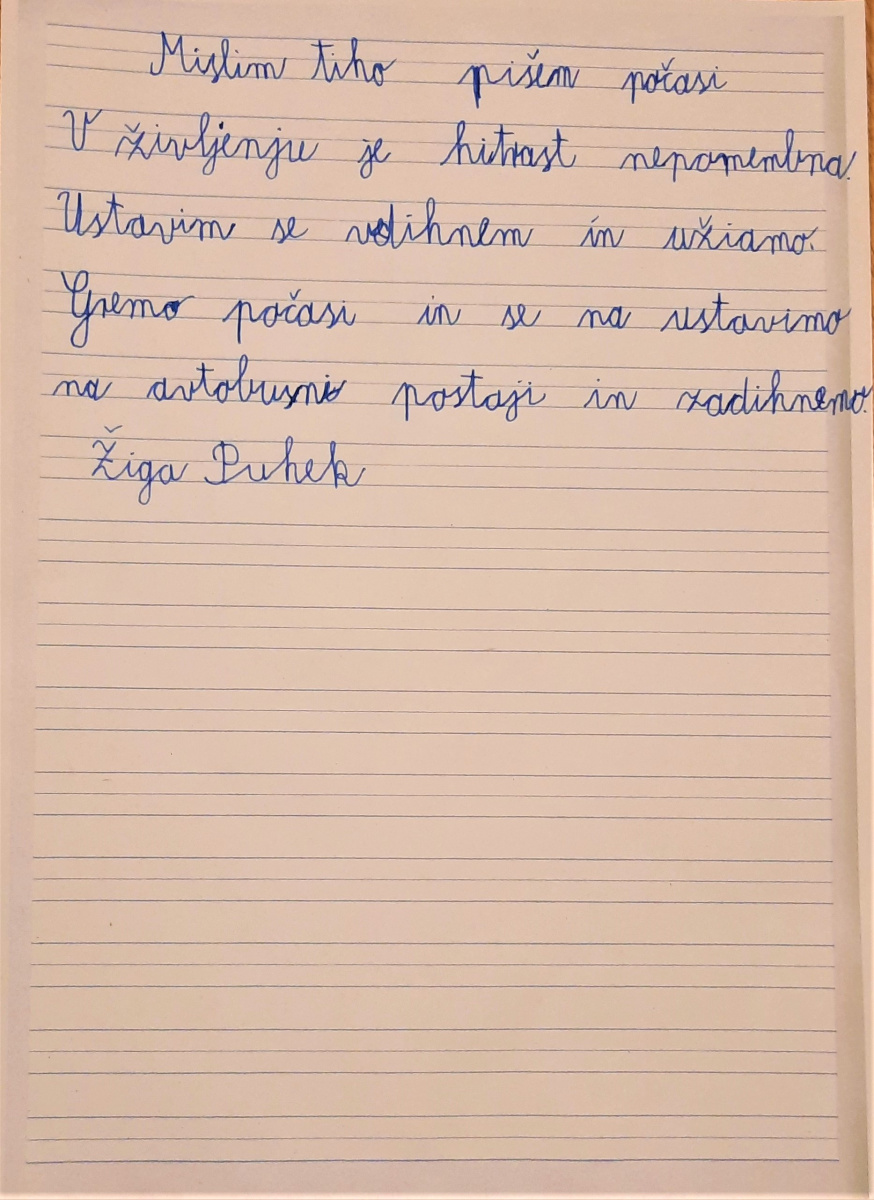 Mislim tiho pišem počasi
V življenju je hitrost nepomembna.
Ustavim se vdihnem in užiamo.
Gremo počasi in se na ustavimo
na avtobusni postaji in zadihnemo.
Žiga Puhek